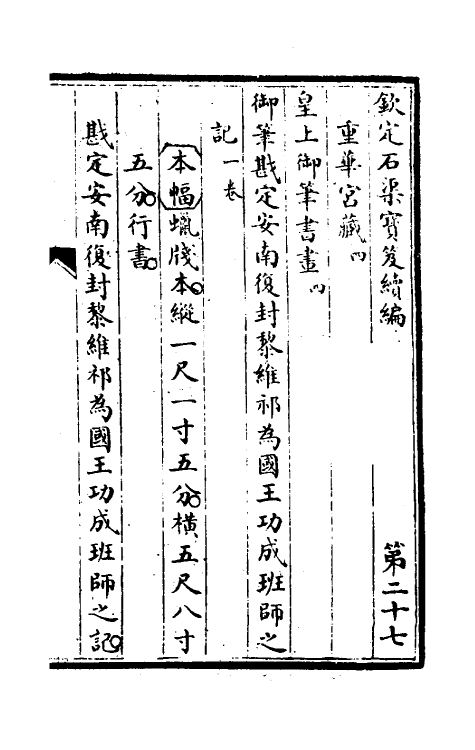 欽定石渠寶笈續編 第二十七
重華宮藏四
皇上御筆書畫四
御筆戡定安南復封黎維祁為國王功成班師之
記一卷
本幅蠟牋本縱一尺一寸五分橫五尺八寸
五分行書
戡定安南復封黎維祁為國王功成班師之記